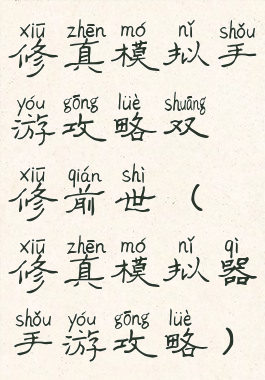 xiū zhēn mó nǐ shǒu
修真模拟手
yóu gōng lüè shuāng
游攻略双
xiū qián shì
修前世（
xiū zhēn mó nǐ qì
修真模拟器
shǒu yóu gōng lüè
手游攻略）